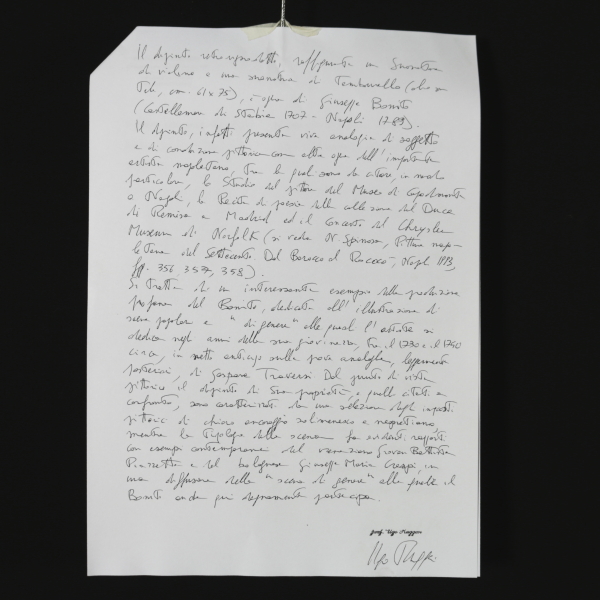 Il dipinto retroriprodotto, raffigurante un Suonatore
di violino e una suonatrice di Tamburello (olio su
tela, cm. 61 x 75), è opera di Giuseppe Bonito
(Castellammare di Stabia 1707 - Napoli 1789).
Il dipinto, infatti presenta vive analogie di soggetto
e di conduzione pittorica con altre opere dell'importante
artista napoletano, tra le quali sono da citare, in modo
particolare, lo Studio del pittore del Museo di Capodimonte
a Napoli, la Recita di poesia della collezione del Duca
di Remisa a Madrid ed il Concerto del Chrysler
Museum di Norfolk (si veda N. Spinosa, Pittura napo-
letana del Settecento. Dal Barocco al Rococò, Napoli
pp. 356 357, 358).
Si tratta di un interessante esempio della produzione
profana del Bonito, dedicata all'illustrazione di
scene popolari e "di genere" alle quali l'artista si
dedica negli anni della sua giovinezza, tra il 1730 e il 1740
circa, in netto anticipo sulle prove analoghe, leggermente
posteriori, di Gaspare Traversi. Dal punto di vista
pittorico il dipinto di Sua proprietà, e quelli citati a
confronto, sono caratterizzati da una selezione degli impasti
pittorici di chiaro ancoraggio solimenesco e
mentre la tipologia della scena ha evidenti rapporti
con esempi contemporanei del veneziano Giovan Battista
Piazzetta e del bolognese Giuseppe Maria Crespi, in
una diffusione delle "scene di genere" alle quali il
Bonito anche qui degnamente partecipa.
prof. Ugo Ruggeri
Ugo Ruggeri